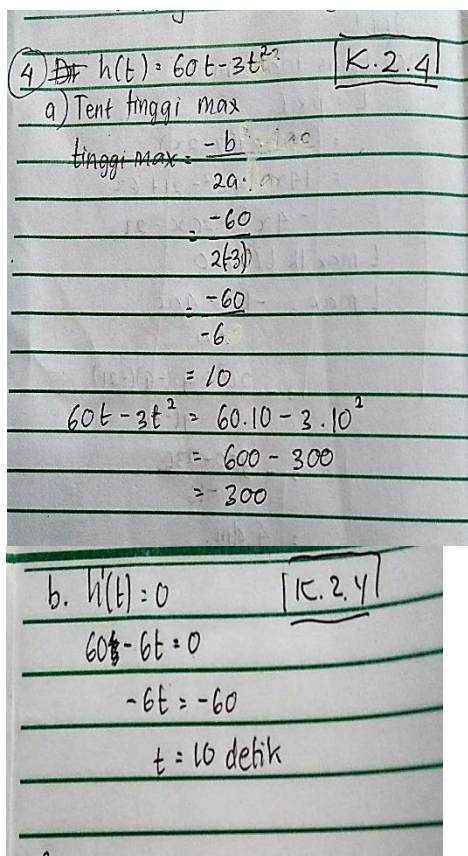 4 h(t) = 60t - 3t²
K.2.4
a) Tent tinggi max
tinggi max = -b
2a
= -60
2(-3)
= -60
-6
= 10
60t - 3t² = 60.10 - 3.10²
= 600 - 300
= 300
b. h'(t) = 0
K.2.4
60 - 6t = 0
-6t = -60
t = 10 detik